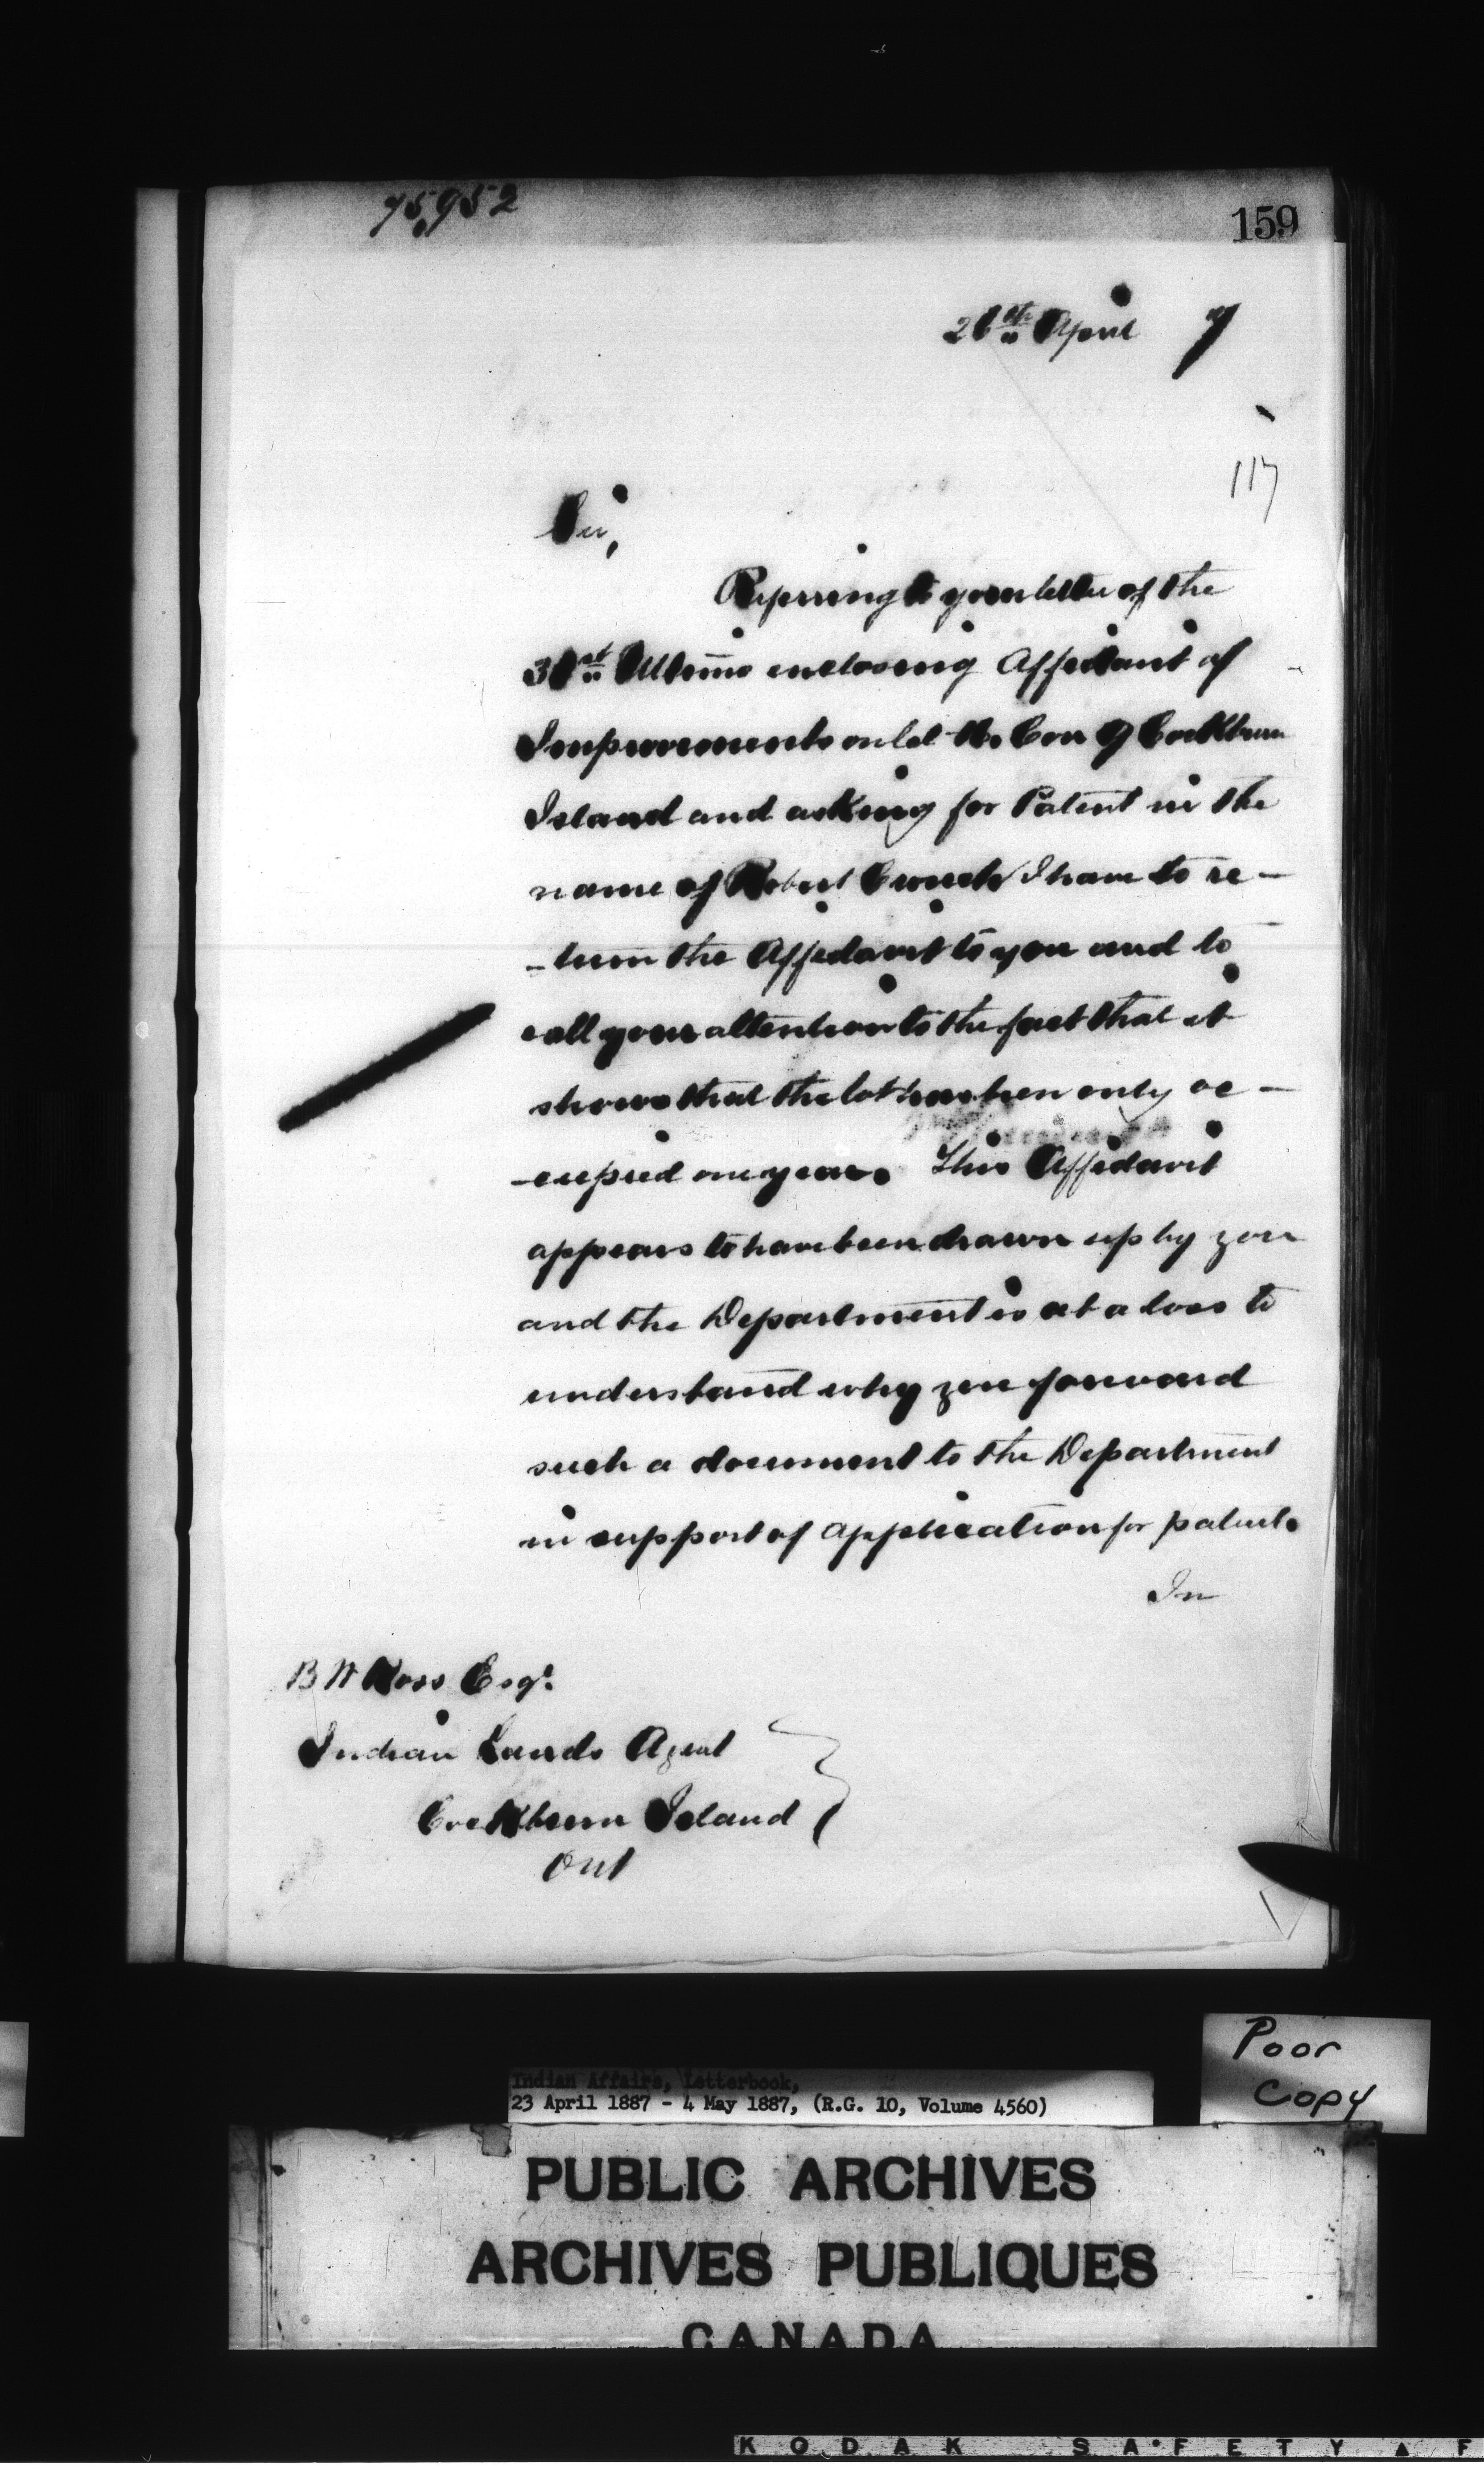 75,952
159
26th April 7
117
Sir,
Referring to your letter of the
31st Ultimo enclosing Affidavit of
Improvements on lot Con 9 Cockburn
Island and asking for Patent in the
name of Robert I have to re-
-turn the Affidavit to you and to
call your attention to the fact that it
shows that the lot has been only oc-
-cupied one year. This Affidavit
appears to have been drawn up by you
and the Department is at a loss to
understand why you forward
such a document to the Department
in support of application for patent.
In
B W Ross Esqr.
Indian Lands Agent
Cockburn Island
Ont
Poor
Copy
Indian Affairs, Letterbook,
23 April 1887 - 4 May 1887, (R.G. 10, Volume 4560)
PUBLIC ARCHIVES
ARCHIVES PUBLIQUES
CANADA
KODAK SAFETY ▲ F